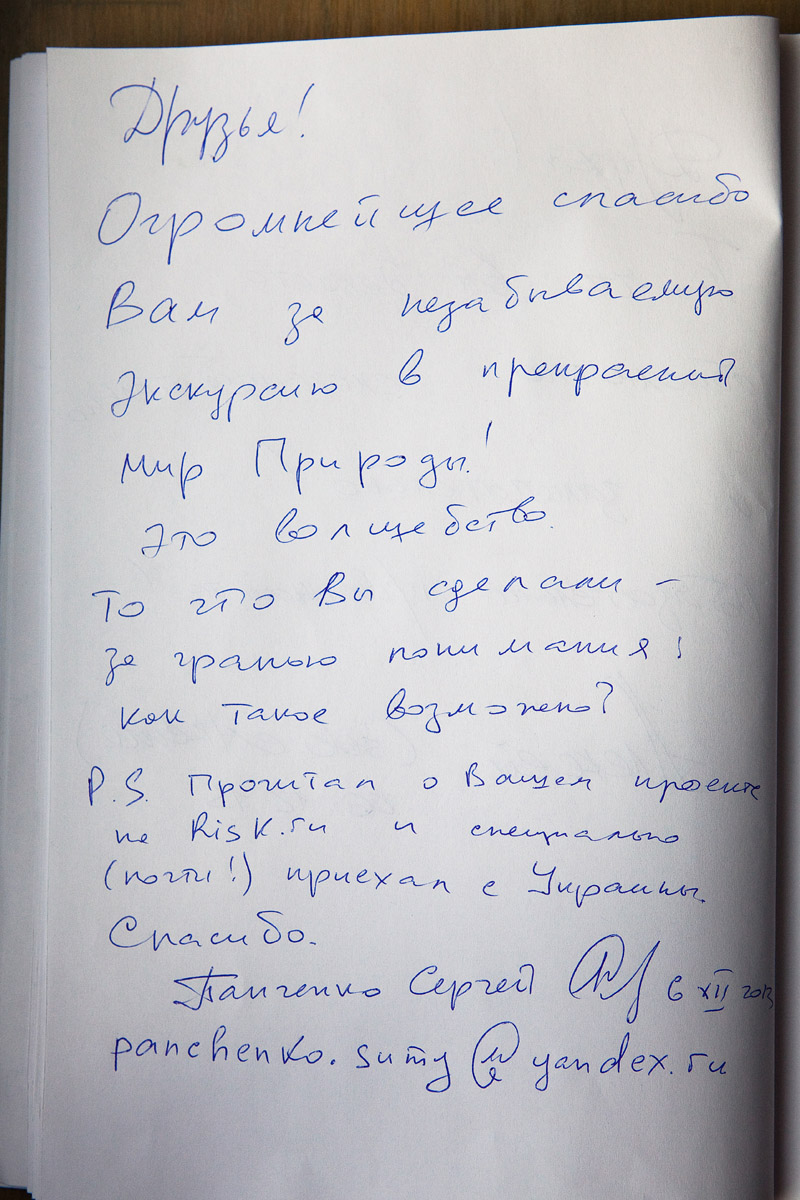 Друзья!
Огромнейщее спасибо
Вам за незабываемую
экскурсию в прекрасный
мир Природы!
Это волщебство.
То что Вы сделали –
за гранью понимания!
как такое возможно?
P.S. Прочитал о Вашем проекте
на Risk.ru и специально
(почти!) приехал с Украины.
Спасибо.
Панченко Сергей 6 XII 2013
panchenko.sumy@yandex.ru